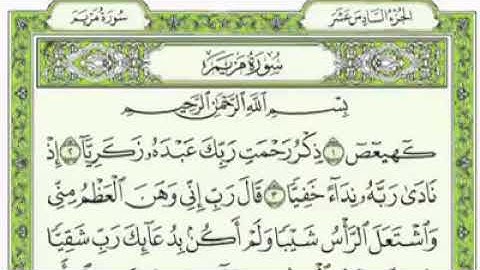 سُورَةُ مَرْيَمَ
الجُزْءُ السَّادِسَ عَشَرَ
سُورَةُ مَرْيَمَ
بِسْمِ ٱللَّهِ ٱلرَّحْمَٰنِ ٱلرَّحِيمِ
كٓهيعٓصٓ ١ ذِكْرُ رَحْمَتِ رَبِّكَ عَبْدَهُۥ زَكَرِيَّآ ٢ إِذْ
نَادَىٰ رَبَّهُۥ نِدَآءً خَفِيًّا ٣ قَالَ رَبِّ إِنِّى وَهَنَ ٱلْعَظْمُ مِنِّى
وَٱشْتَعَلَ ٱلرَّأْسُ شَيْبًا وَلَمْ أَكُنۢ بِدُعَآئِكَ رَبِّ شَقِيًّا